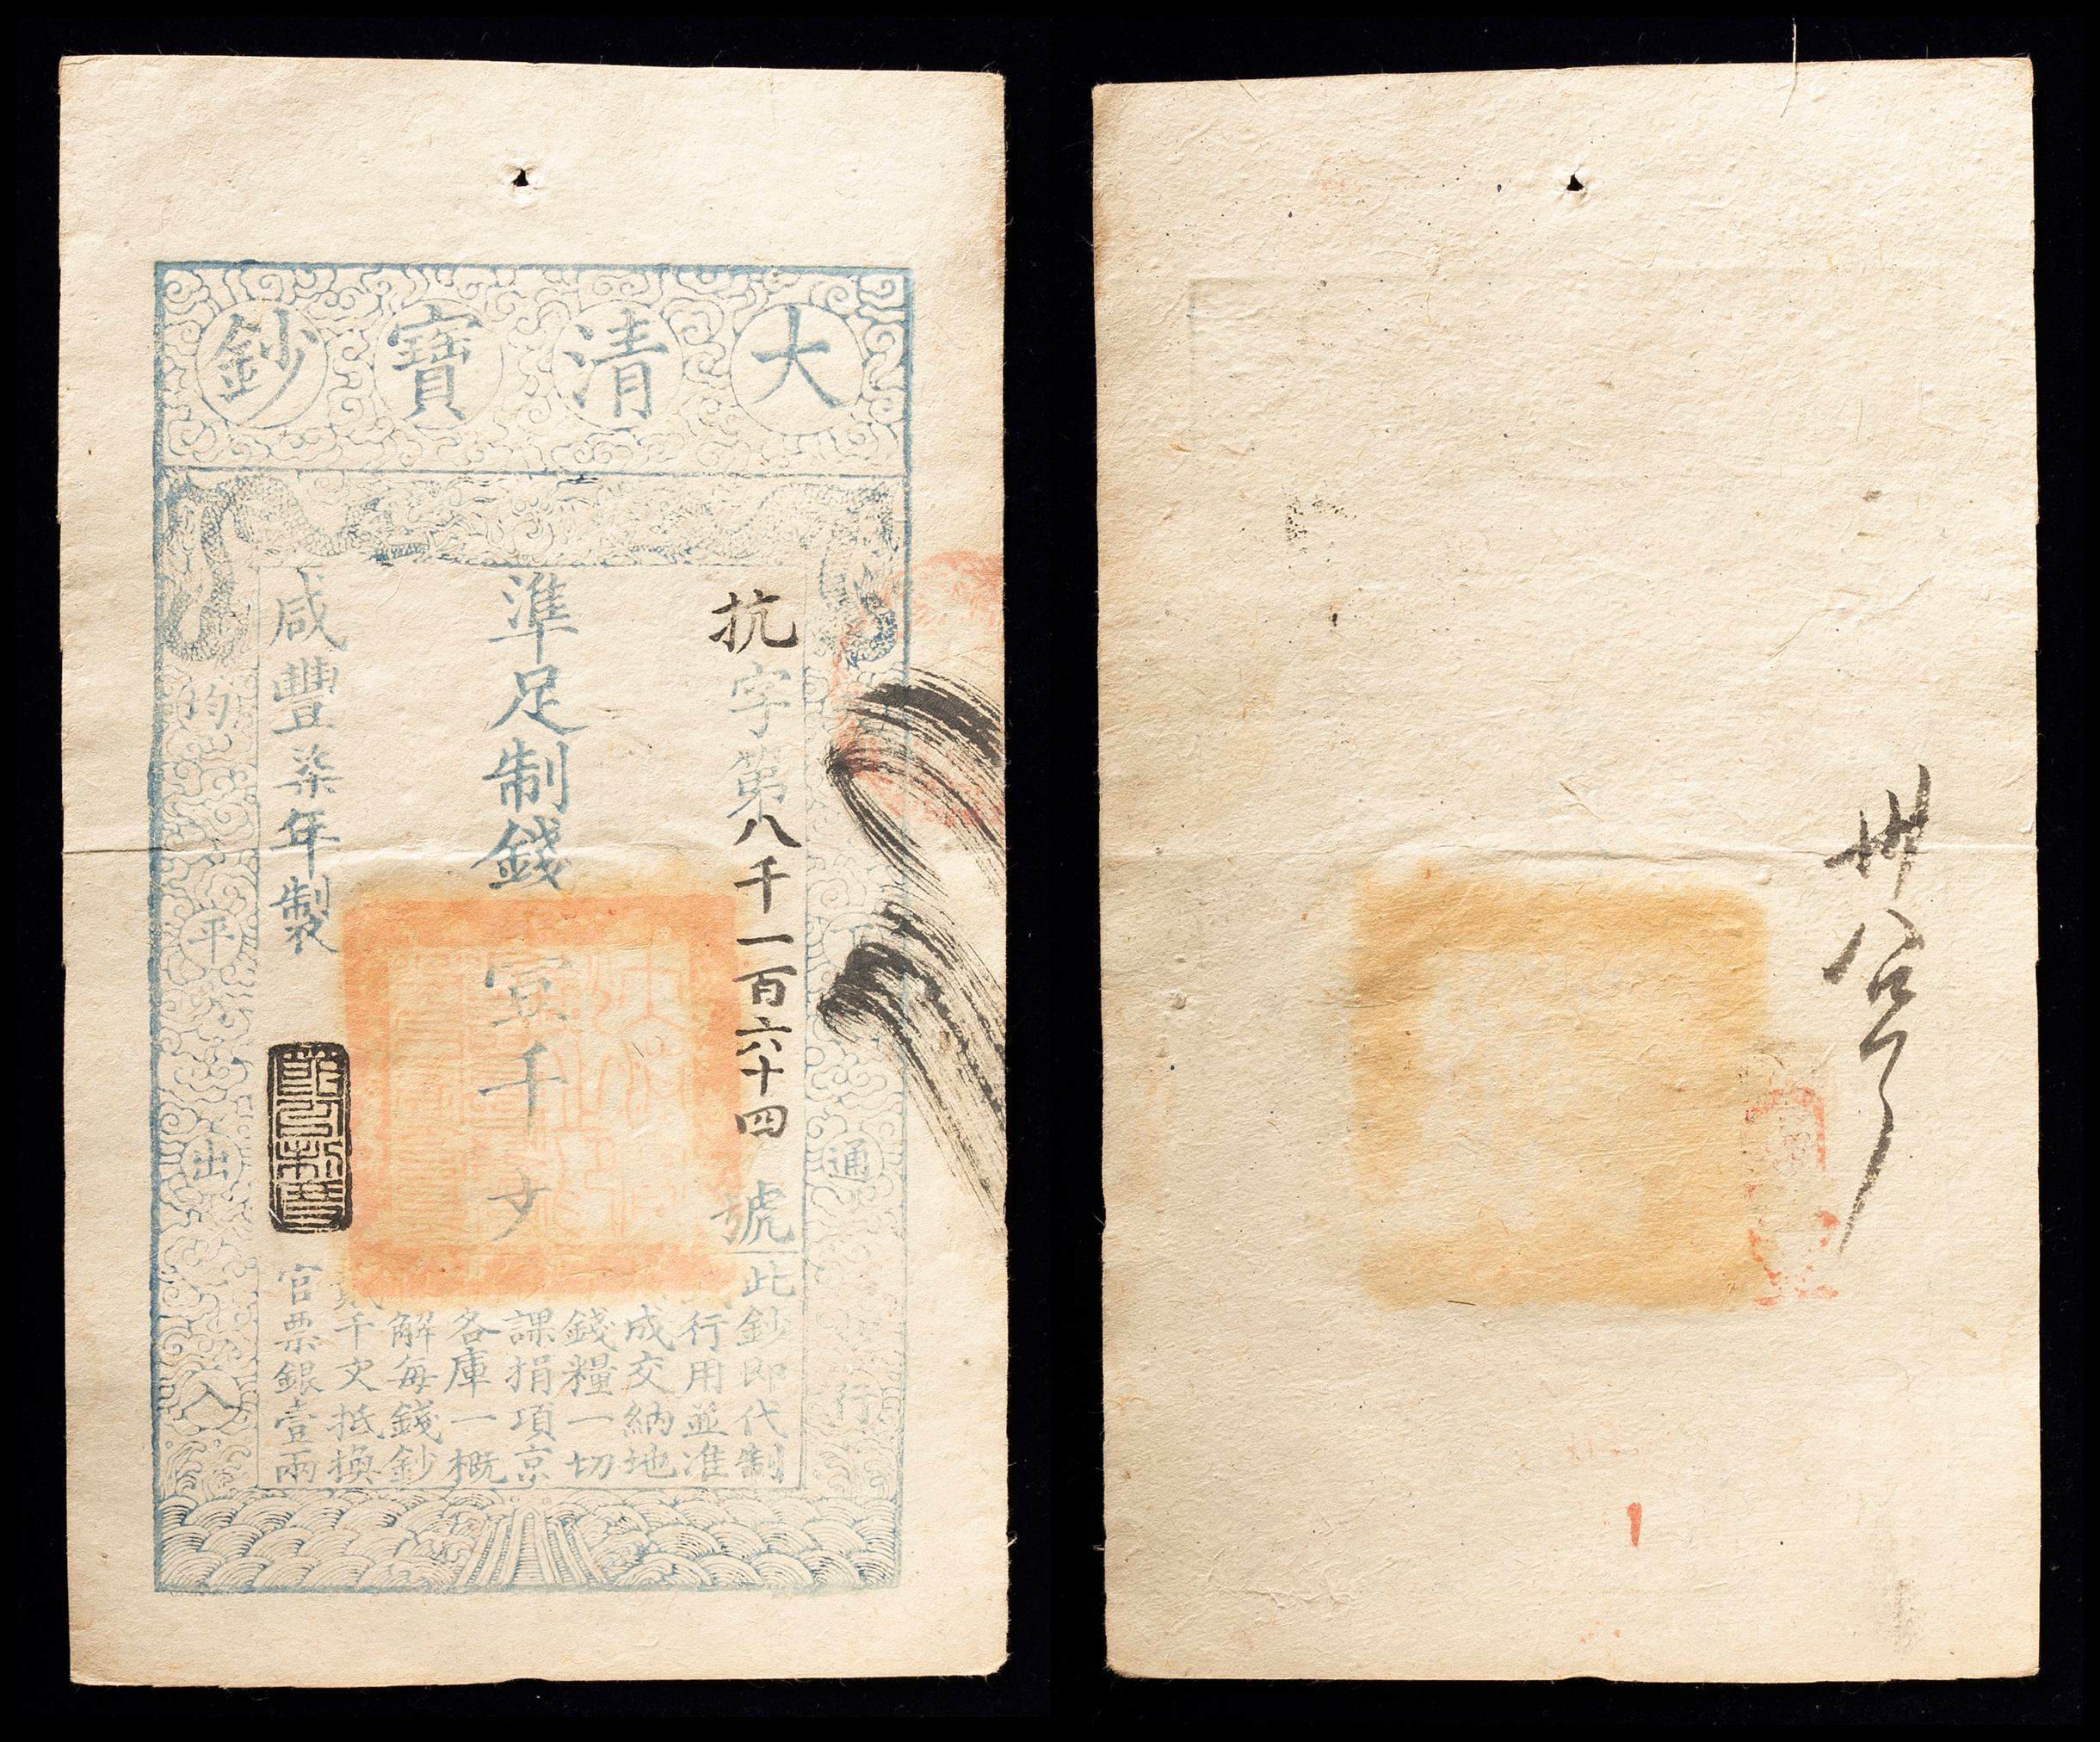 大清寶鈔
抗字第八千一百六十四號
準足制錢壹千文
咸豐柒年製
此鈔即代制
行用並准
成交納地
錢糧一切
課捐項京
各庫一概
解每錢鈔
貳千文抵換
官票銀壹兩
天下通行
均平出入